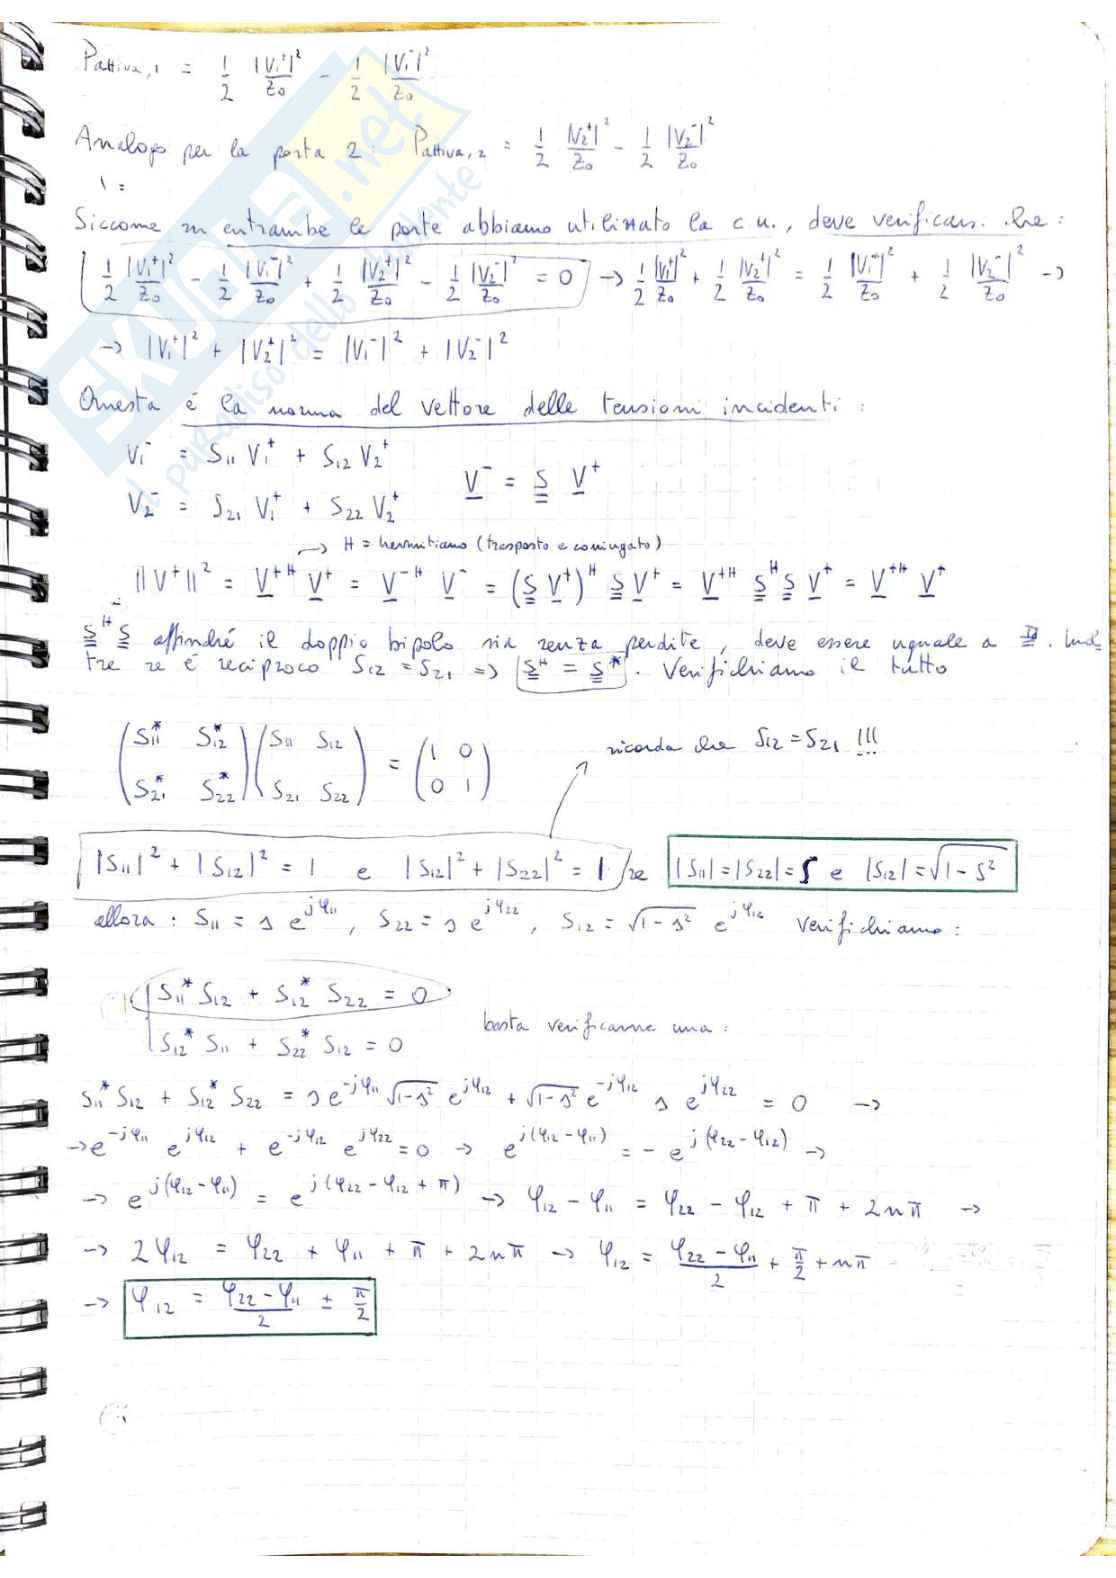 Pattiva,1 = 1/2 |V1+|²/Z0 - 1/2 |V1-|²/Z0
Analogo per la porta 2: Pattiva,2 = 1/2 |V2+|²/Z0 - 1/2 |V2-|²/Z0
Siccome in entrambe le porte abbiamo utilizzato la c.u., deve verificarsi che:
1/2 |V1+|²/Z0 - 1/2 |V1-|²/Z0 + 1/2 |V2+|²/Z0 - 1/2 |V2-|²/Z0 = 0 → 1/2 |V1+|²/Z0 + 1/2 |V2+|²/Z0 = 1/2 |V1-|²/Z0 + 1/2 |V2-|²/Z0 →
→ |V1+|² + |V2+|² = |V1-|² + |V2-|²
Questa é la norma del vettore delle tensioni incidenti:
V1- = S11 V1+ + S12 V2+
V- = S V+
V2- = S21 V1+ + S22 V2+
→ H = hermitiano (trasposto e coniugato)
||V+||² = V+H V+ = V-H V- = (S V+)H S V+ = V+H SH S V+ = V+H V+
SH S affinché il doppio bipolo sia senza perdite, deve essere uguale a I. Inol
tre se é reciproco S12 = S21 => SH = S*. Verifichiamo il tutto
(S11* S12*) (S11 S12) = (1 0)
(S21* S22*) (S21 S22) (0 1)
ricorda che S12 = S21 !!!
|S11|² + |S12|² = 1 e |S12|² + |S22|² = 1 se |S11| = |S22| = s e |S12| = √1-s²
allora: S11 = s e^jφ11, S22 = s e^jφ22, S12 = √1-s² e^jφ12 Verifichiamo:
S11* S12 + S12* S22 = 0
basta verificarne una:
S12* S11 + S22* S12 = 0
S11* S12 + S12* S22 = s e^-jφ11 √1-s² e^jφ12 + √1-s² e^-jφ12 s e^jφ22 = 0 →
→ e^-jφ11 e^jφ12 + e^-jφ12 e^jφ22 = 0 → e^j(φ12-φ11) = - e^j(φ22-φ12) →
→ e^j(φ12-φ11) = e^j(φ22-φ12+π) → φ12 - φ11 = φ22 - φ12 + π + 2nπ →
→ 2φ12 = φ22 + φ11 + π + 2nπ → φ12 = (φ22 - φ11)/2 + π/2 + nπ
→ φ12 = (φ22 - φ11)/2 ± π/2
SKUOLA.net
il paradiso dello studente